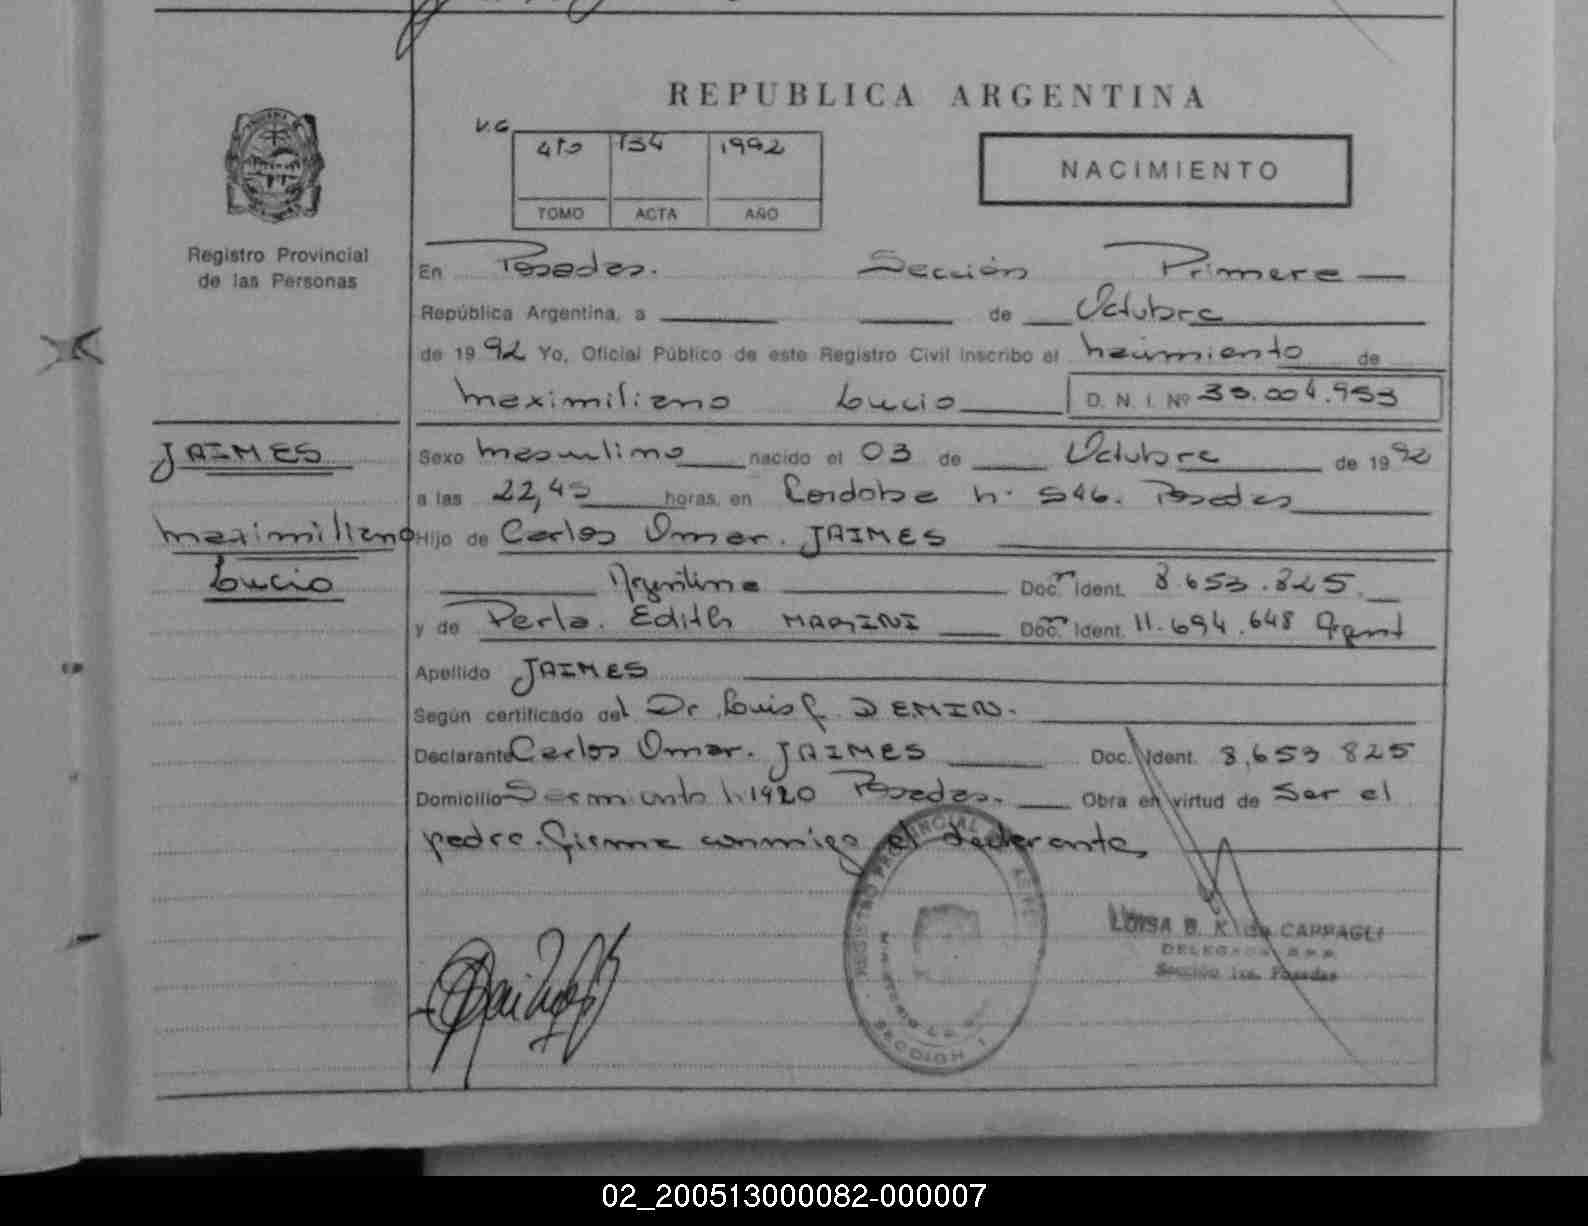 REPUBLICA ARGENTINA
V.G
4to 134 1992
TOMO ACTA AÑO
NACIMIENTO
Registro Provincial
de las Personas
En Posadas. Sección Primera
República Argentina, a de Octubre
de 1992 Yo, Oficial Público de este Registro Civil inscribo el nacimiento de
Maximiliano Lucio D. N. I. Nº 35.004.953
JAIMES
Maximiliano
Lucio
Sexo Masculino nacido el 03 de Octubre de 1992
a las 22,45 horas, en Cordoba n° 546. Posadas
Hijo de Carlos Omar. JAIMES
Argentino Doc. Ident. 8.653.825.
y de Perla. Edith MARINI Doc. Ident. 11.694.648 Argent
Apellido JAIMES
Según certificado del Dr. Luis DEMIN.
Declarante Carlos Omar. JAIMES Doc. Ident. 8,653 825
Domicilio Sarmiento n. 1920 Posadas. Obra en virtud de Ser el
padre. Firma conmigo el declarante,
REGISTRO PROVINCIAL
SECCION 1
LUISA B. K. de CAPPAGLI
DELEGADA R.P.P.
Sección 1ra. Posadas
02_200513000082-000007